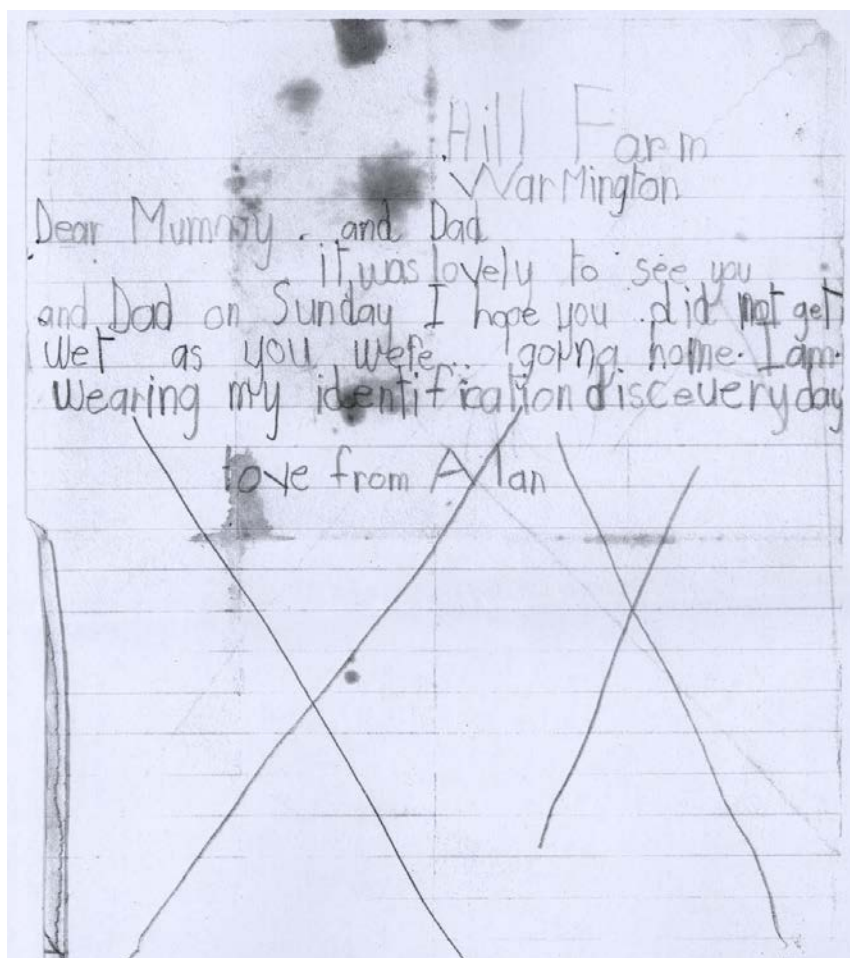 Hill Farm
WarMington
Dear Mummy. and Dad
it was lovely to see you
and Dad on Sunday I hope you did not get
wet as you were going home. I am.
Wearing my identification disc every day
love from Alan